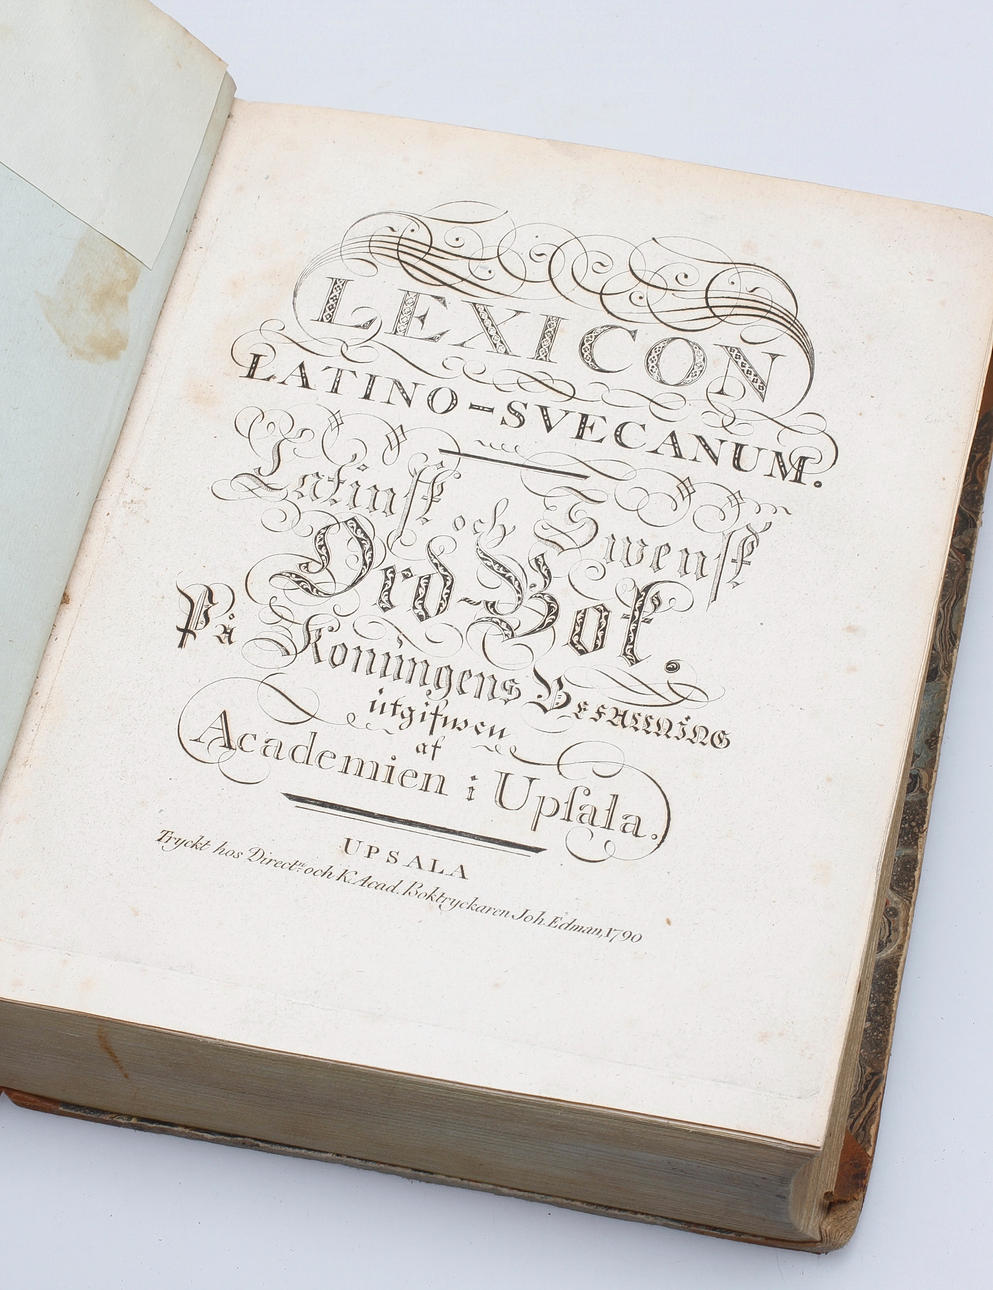 LEXICON
LATINO-SVECANUM.
Latinſk och Swenſk
Ord-Bok.
På Konungens Befallning
utgifwen
af
Academien i Upſala.
UPSALA
Tryckt hos Directn. och K. Acad. Boktryckaren Joh. Edman, 1790